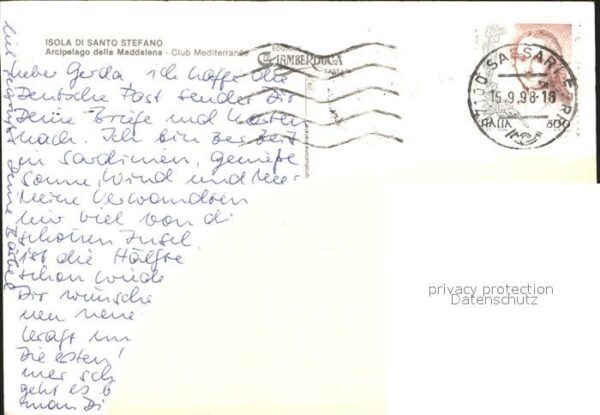 ISOLA DI SANTO STEFANO
Arcipelago della Maddalena - Club Mediterranée
EDIZIONE
GIAMBERDUGA
SASSARI
07100 SASSARI
15.9.98-18
ITALIA 800
Lieber Gerda, ich hoffe die
Deutsche Post sendet Dir
Deine Briefe und Karten
nach. Ich bin zur Zeit
in Sardinien, genieße
Sonne, Wind und Meer
Meine Verwandten
hir viel von di
schönen Insel.
ist die Hälfte
schon wiede
Dir wünsche
nen neue
Kraft un
Die ersten
mer sch
geht es b
man Di
Deine Bärbel
privacy protection
Datenschutz